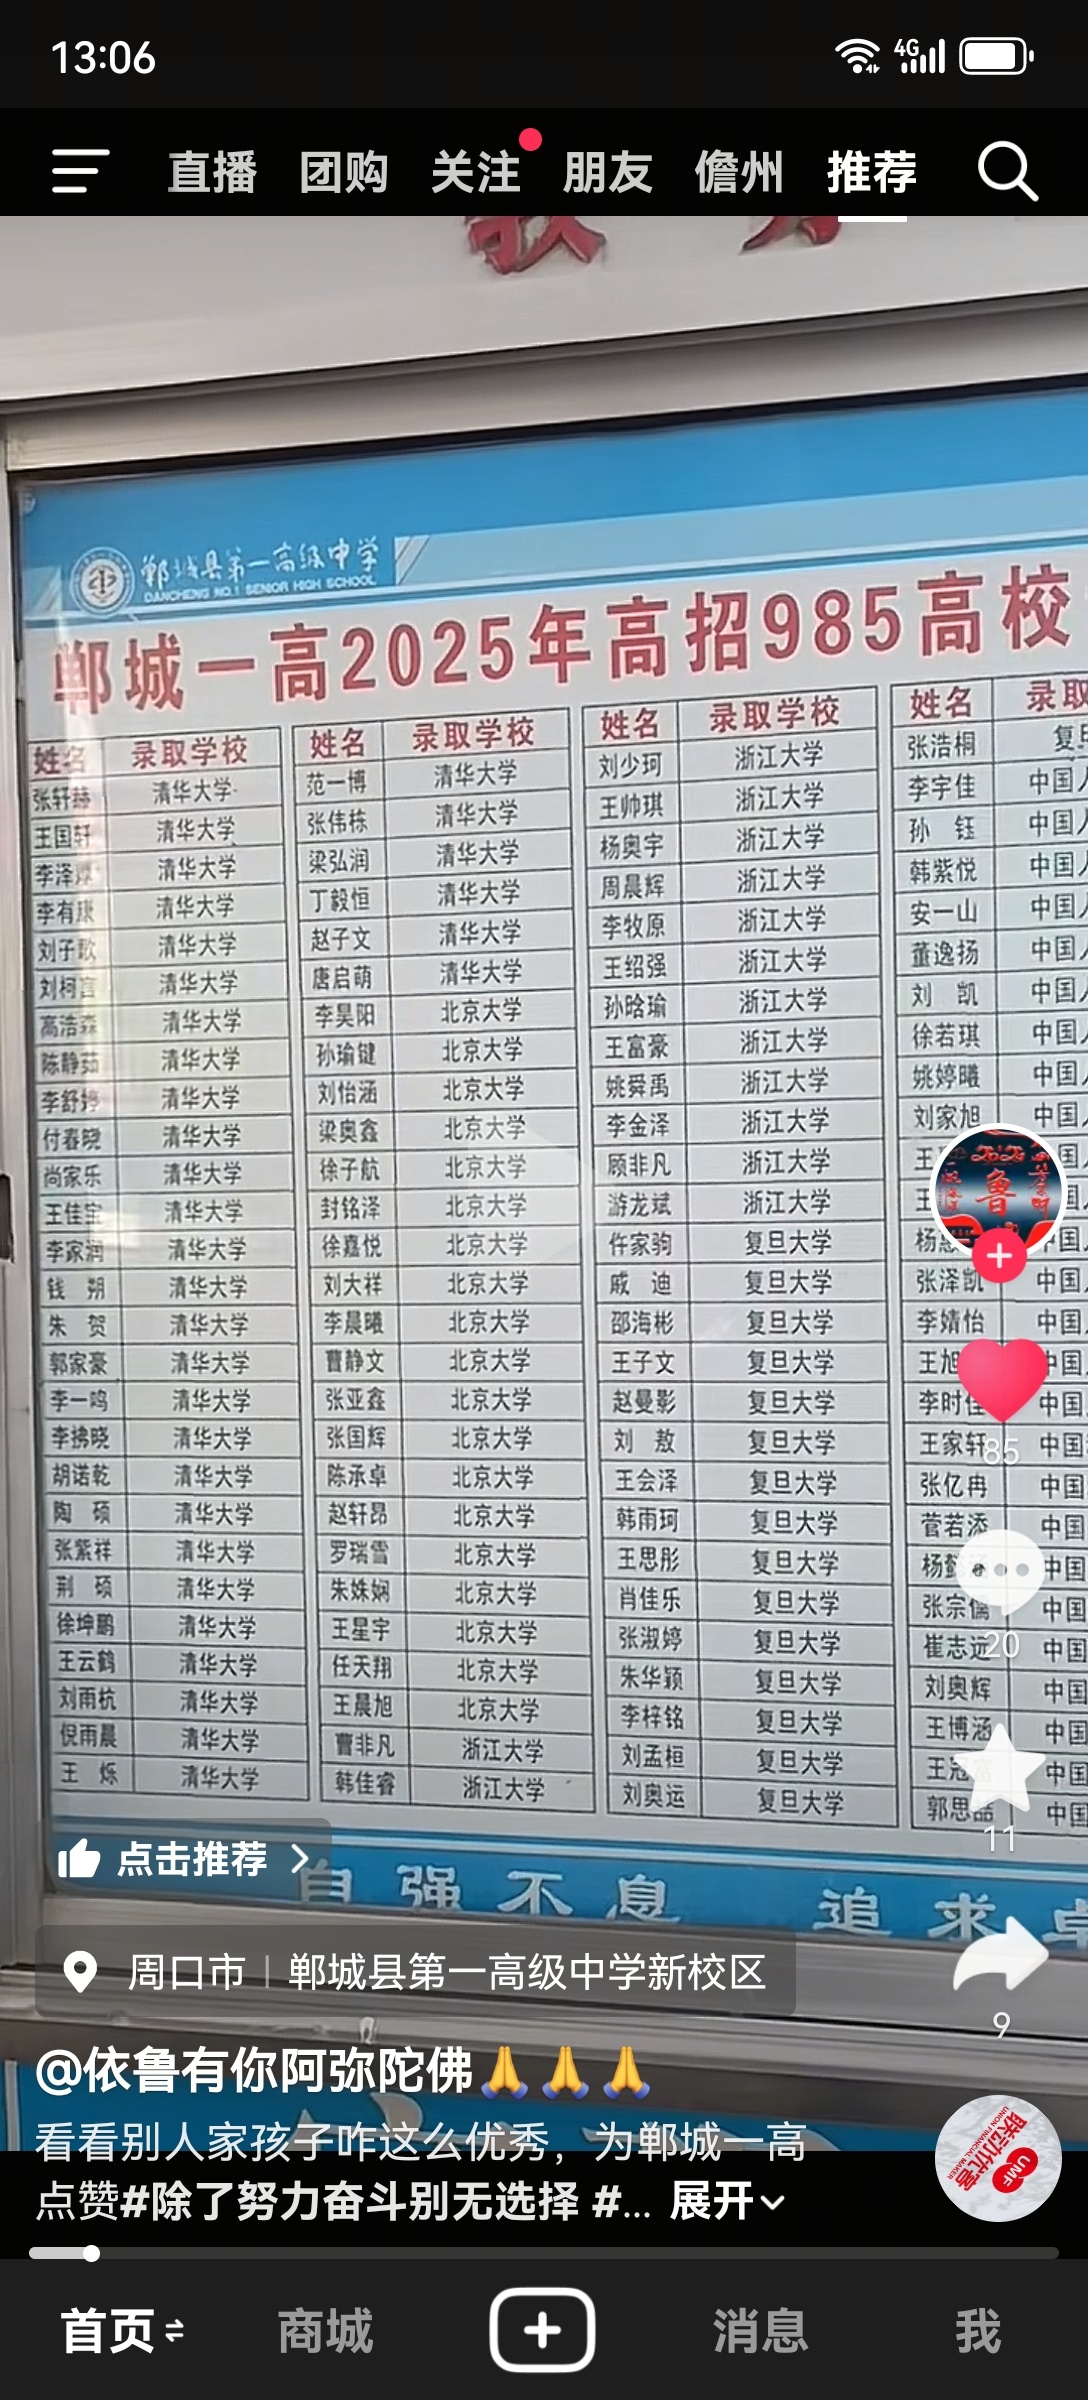 13:06
4G
直播 团购 关注 朋友 儋州 推荐
郸城县第一高级中学
DANCHENG NO.1 SENIOR HIGH SCHOOL
郸城一高2025年高招985高校
姓名 录取学校 姓名 录取学校 姓名 录取学校 姓名 录取
张轩赫 清华大学 范一博 清华大学 刘少珂 浙江大学 张浩桐 复旦
王国轩 清华大学 张伟栋 清华大学 王帅琪 浙江大学 李宇佳 中国人
李泽 清华大学 梁弘润 清华大学 杨奥宇 浙江大学 孙 钰 中国人
李有康 清华大学 丁毅恒 清华大学 周晨辉 浙江大学 韩紫悦 中国人
刘子歌 清华大学 赵子文 清华大学 李牧原 浙江大学 安一山 中国人
刘柯言 清华大学 唐启萌 清华大学 王绍强 浙江大学 董逸扬 中国人
高浩森 清华大学 李昊阳 北京大学 孙晗瑜 浙江大学 刘 凯 中国人
陈静茹 清华大学 孙瑜键 北京大学 王富豪 浙江大学 徐若琪 中国人
李舒婷 清华大学 刘怡涵 北京大学 姚舜禹 浙江大学 姚婷曦 中国人
付春晓 清华大学 梁奥鑫 北京大学 李金泽 浙江大学 刘家旭 中国人
尚家乐 清华大学 徐子航 北京大学 顾非凡 浙江大学 王 国人
王佳宝 清华大学 封铭泽 北京大学 游龙斌 浙江大学 王 国人
李家润 清华大学 徐嘉悦 北京大学 仵家驹 复旦大学 杨 中国人
钱 朔 清华大学 刘大祥 北京大学 戚 迪 复旦大学 张泽凯 中国人
朱 贺 清华大学 李晨曦 北京大学 邵海彬 复旦大学 李婧怡 中国人
郭家豪 清华大学 曹静文 北京大学 王子文 复旦大学 王旭 中国人
李一鸣 清华大学 张亚鑫 北京大学 赵曼影 复旦大学 李时佳 中国
李拂晓 清华大学 张国辉 北京大学 刘 敖 复旦大学 王家轩 中国
胡诺乾 清华大学 陈承卓 北京大学 王会泽 复旦大学 张亿冉 中国
陶 硕 清华大学 赵轩昂 北京大学 韩雨珂 复旦大学 菅若添 中国
张紫祥 清华大学 罗瑞雪 北京大学 王思彤 复旦大学 杨 涵 中国
荆 硕 清华大学 朱姝娴 北京大学 肖佳乐 复旦大学 张宗儒 中国
徐坤鹏 清华大学 王星宇 北京大学 张淑婷 复旦大学 崔志远 中国
王云鹤 清华大学 任天翔 北京大学 朱华颖 复旦大学 刘奥辉 中国
刘雨杭 清华大学 王晨旭 北京大学 李梓铭 复旦大学 王博涵 中国
倪雨晨 清华大学 曹非凡 浙江大学 刘孟桓 复旦大学 王冠 中国
王 烁 清华大学 韩佳睿 浙江大学 刘奥运 复旦大学 郭思喆 中国
鲁
85
20
11
9
点击推荐
自强不息 追求卓
周口市 | 郸城县第一高级中学新校区
@依鲁有你阿弥陀佛🙏🙏🙏
看看别人家孩子咋这么优秀，为郸城一高
点赞#除了努力奋斗别无选择 #... 展开
联动优客
UNION FINANCIAL MAKER
UMF
首页 商城 消息 我